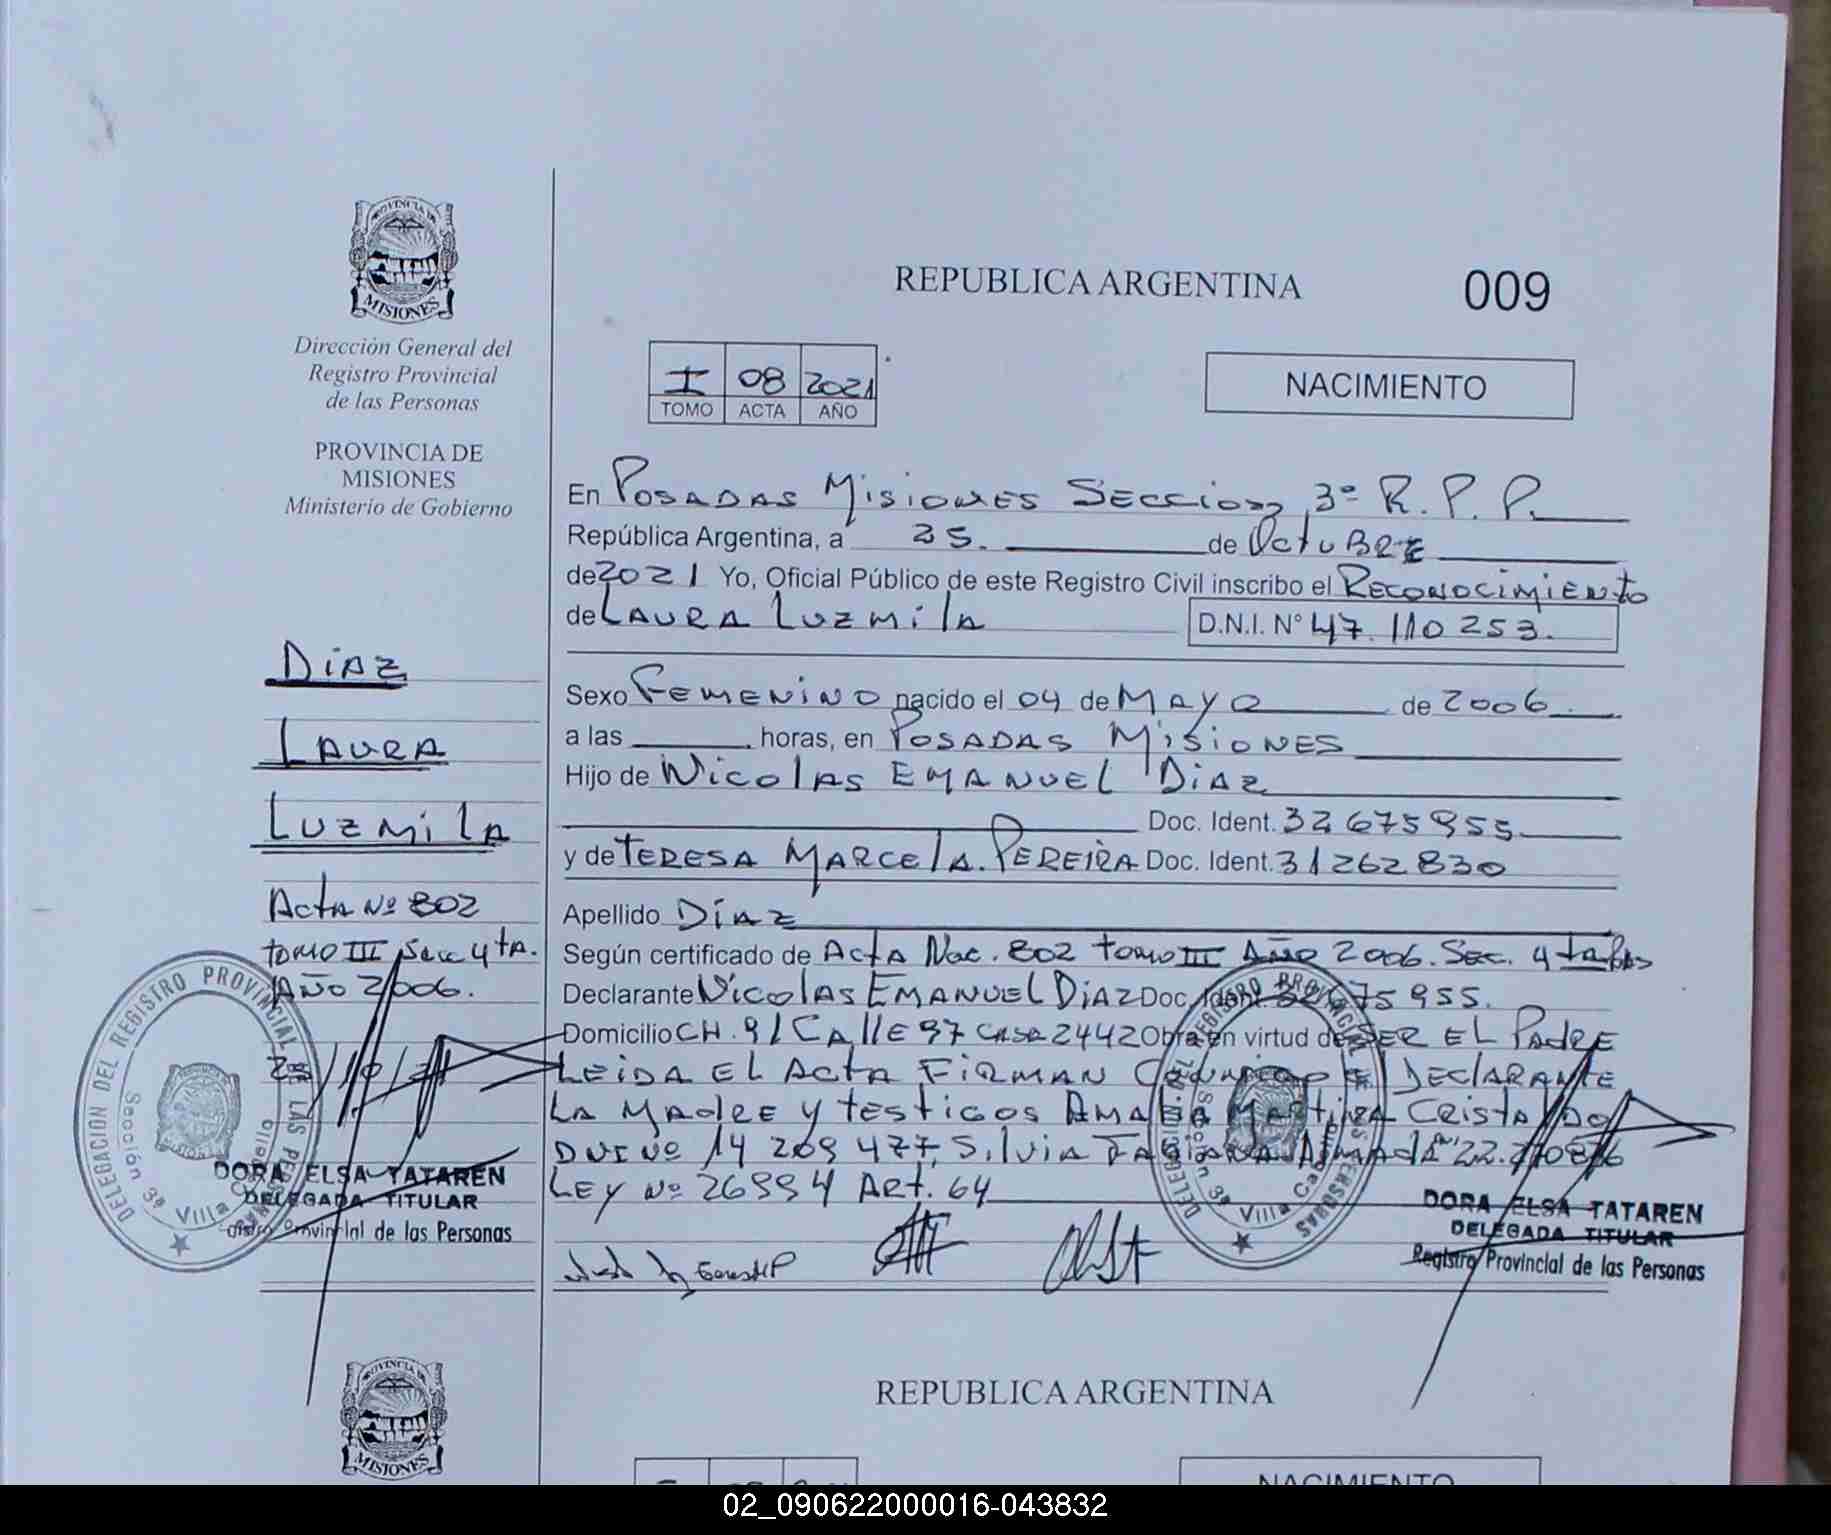 PROVINCIA DE
MISIONES
Dirección General del
Registro Provincial
de las Personas
PROVINCIA DE
MISIONES
Ministerio de Gobierno
REPUBLICA ARGENTINA
009
I 08 2021
TOMO ACTA AÑO
NACIMIENTO
En POSADAS MISIONES SECCION 3ª R. P. P.
República Argentina, a 25. de OCTUBRE
de 2021 Yo, Oficial Público de este Registro Civil inscribo el RECONOCIMIENTO
de LAURA LUZMILA D.N.I. N° 47.110253.
Sexo FEMENINO nacido el 04 de MAYO de 2006
a las horas, en POSADAS MISIONES
Hijo de NICOLAS EMANUEL DIAZ
Doc. Ident. 32675955
y de TERESA MARCELA PEREIRA Doc. Ident. 31262830
Apellido DIAZ
Según certificado de ACTA Nac. 802 TOMO III AÑO 2006. Sec. 4ta Pdas
Declarante NICOLAS EMANUEL DIAZ Doc. Ident. 32675955.
Domicilio CH. 91 CALLE 97 CASA 2442 Obra en virtud de SER EL PADRE
LEIDA EL ACTA FIRMAN CONMIGO EL DECLARANTE
LA MADRE Y TESTIGOS AMALIA MARTINA CRISTALDO
DNI Nº 14 209 477, SILVIA FABIANA
LEY Nº 26994 ART. 64
DIAZ
LAURA
LUZMILA
ACTA Nº 802
TOMO III Sec 4tA.
AÑO 2006.
DELEGACION DEL REGISTRO PROVINCIAL DE LAS PERSONAS
Sección 3ª Villa Cabello
DORA ELSA TATAREN
DELEGADA TITULAR
Registro Provincial de las Personas
DELEGACION DEL REGISTRO PROVINCIAL DE LAS PERSONAS
Sección 3ª Villa Cabello
DORA ELSA TATAREN
DELEGADA TITULAR
Registro Provincial de las Personas
PROVINCIA DE
MISIONES
REPUBLICA ARGENTINA
NACIMIENTO
02_090622000016-043832